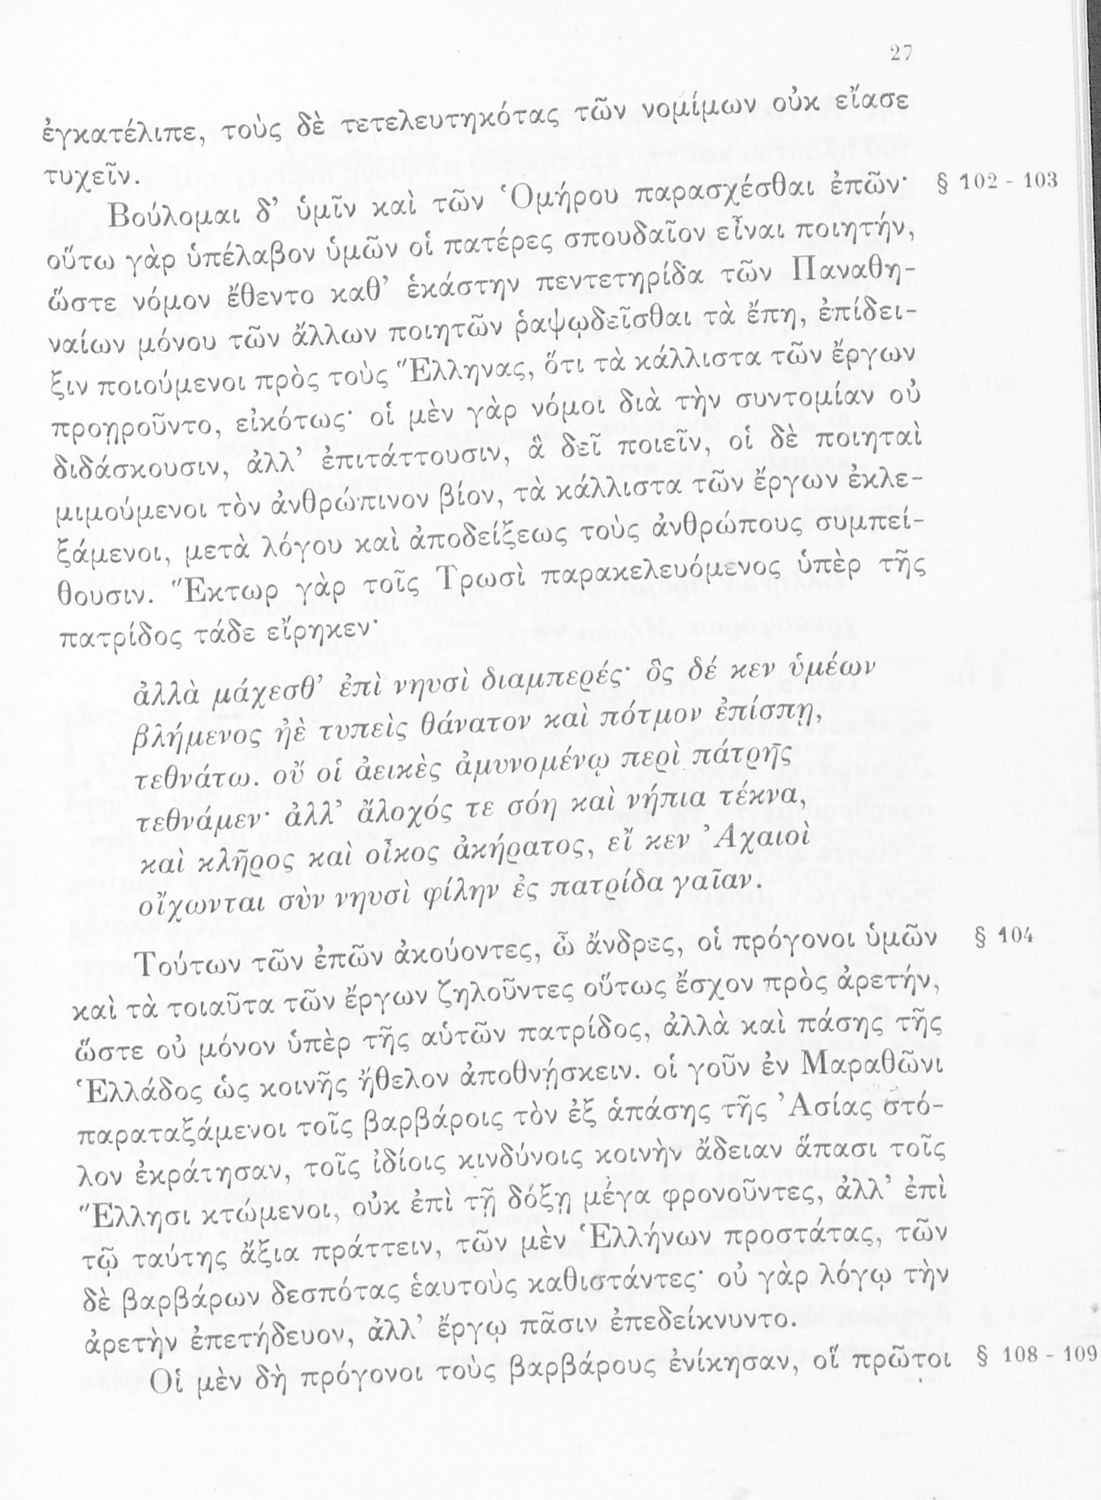 27
ἐγκατέλιπε, τοὺς δὲ τετελευτηκότας τῶν νομίμων οὐκ εἴασε
τυχεῖν.
Βούλομαι δ’ ὑμῖν καὶ τῶν Ὁμήρου παρασχέσθαι ἐπῶν· § 102 - 103
οὕτω γὰρ ὑπέλαβον ὑμῶν οἱ πατέρες σπουδαῖον εἶναι ποιητήν,
ὥστε νόμον ἔθεντο καθ’ ἑκάστην πεντετηρίδα τῶν Παναθη-
ναίων μόνου τῶν ἄλλων ποιητῶν ῥαψῳδεῖσθαι τὰ ἔπη, ἐπίδει-
ξιν ποιούμενοι πρὸς τοὺς Ἕλληνας, ὅτι τὰ κάλλιστα τῶν ἔργων
προῃροῦντο, εἰκότως· οἱ μὲν γὰρ νόμοι διὰ τὴν συντομίαν οὐ
διδάσκουσιν, ἀλλ’ ἐπιτάττουσιν, ἃ δεῖ ποιεῖν, οἱ δὲ ποιηταὶ
μιμούμενοι τὸν ἀνθρώπινον βίον, τὰ κάλλιστα τῶν ἔργων ἐκλε-
ξάμενοι, μετὰ λόγου καὶ ἀποδείξεως τοὺς ἀνθρώπους συμπεί-
θουσιν. Ἕκτωρ γὰρ τοῖς Τρωσὶ παρακελευόμενος ὑπὲρ τῆς
πατρίδος τάδε εἴρηκεν·
ἀλλὰ μάχεσθ’ ἐπὶ νηυσὶ διαμπερές· ὃς δέ κεν ὑμέων
βλήμενος ἠὲ τυπεὶς θάνατον καὶ πότμον ἐπίσπῃ,
τεθνάτω. οὔ οἱ ἀεικὲς ἀμυνομένῳ περὶ πάτρης
τεθνάμεν· ἀλλ’ ἄλοχός τε σόη καὶ νήπια τέκνα,
καὶ κλῆρος καὶ οἶκος ἀκήρατος, εἴ κεν Ἀχαιοὶ
οἴχωνται σὺν νηυσὶ φίλην ἐς πατρίδα γαῖαν.
Τούτων τῶν ἐπῶν ἀκούοντες, ὦ ἄνδρες, οἱ πρόγονοι ὑμῶν § 104
καὶ τὰ τοιαῦτα τῶν ἔργων ζηλοῦντες οὕτως ἔσχον πρὸς ἀρετήν,
ὥστε οὐ μόνον ὑπὲρ τῆς αὑτῶν πατρίδος, ἀλλὰ καὶ πάσης τῆς
Ἑλλάδος ὡς κοινῆς ἤθελον ἀποθνῄσκειν. οἱ γοῦν ἐν Μαραθῶνι
παραταξάμενοι τοῖς βαρβάροις τὸν ἐξ ἁπάσης τῆς Ἀσίας στό-
λον ἐκράτησαν, τοῖς ἰδίοις κινδύνοις κοινὴν ἄδειαν ἅπασι τοῖς
Ἕλλησι κτώμενοι, οὐκ ἐπὶ τῇ δόξῃ μέγα φρονοῦντες, ἀλλ’ ἐπὶ
τῷ ταύτης ἄξια πράττειν, τῶν μὲν Ἑλλήνων προστάτας, τῶν
δὲ βαρβάρων δεσπότας ἑαυτοὺς καθιστάντες· οὐ γὰρ λόγῳ τὴν
ἀρετὴν ἐπετήδευον, ἀλλ’ ἔργῳ πᾶσιν ἐπεδείκνυντο.
Οἱ μὲν δὴ πρόγονοι τοὺς βαρβάρους ἐνίκησαν, οἳ πρῶτοι § 108 - 109